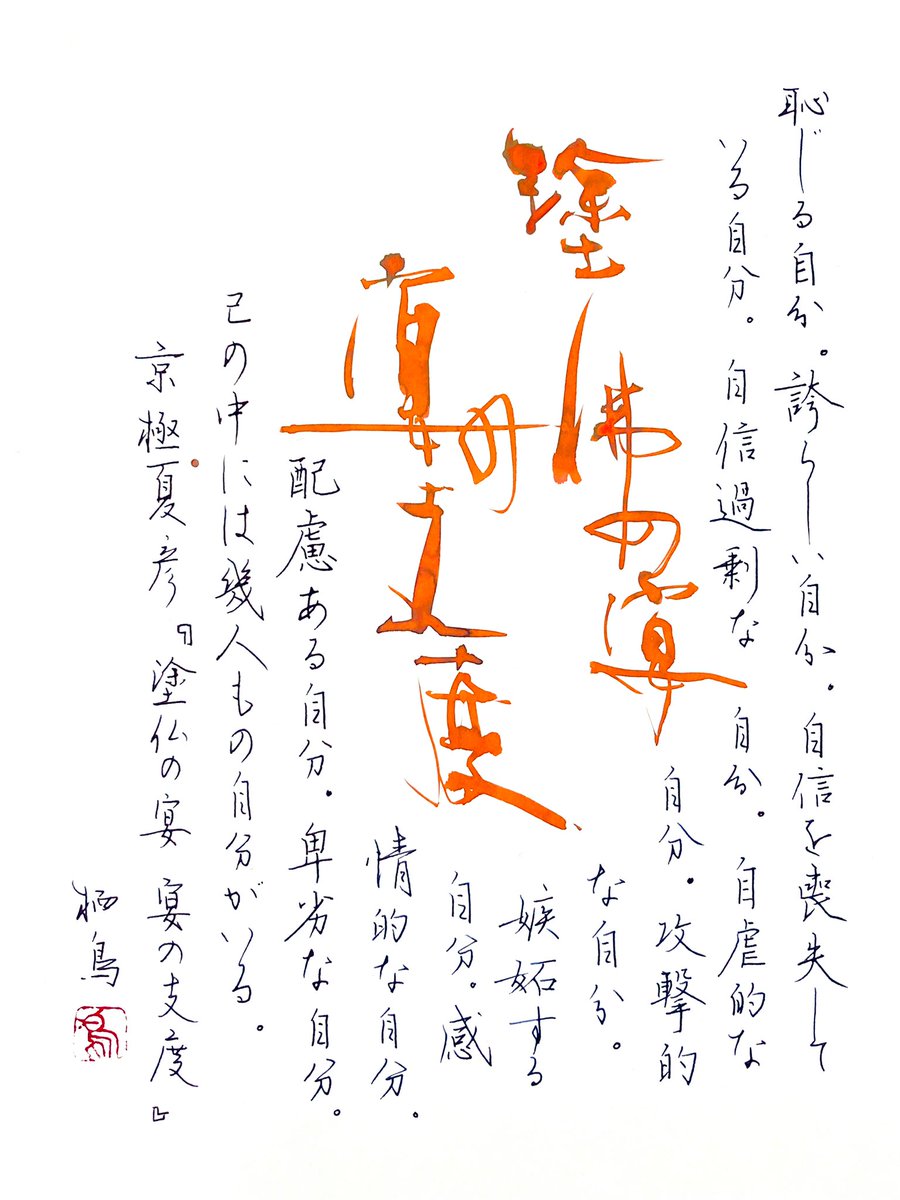 恥じる自分。誇らしい自分。自信を喪失して
いる自分。自信過剰な自分。自虐的な
自分。攻撃的
な自分。
嫉妬する
自分。感
情的な自分。
配慮ある自分。卑劣な自分。
己の中には幾人もの自分がいる。
塗佛の宴
宴の支度
京極夏彦『塗仏の宴 宴の支度』
栖鳥